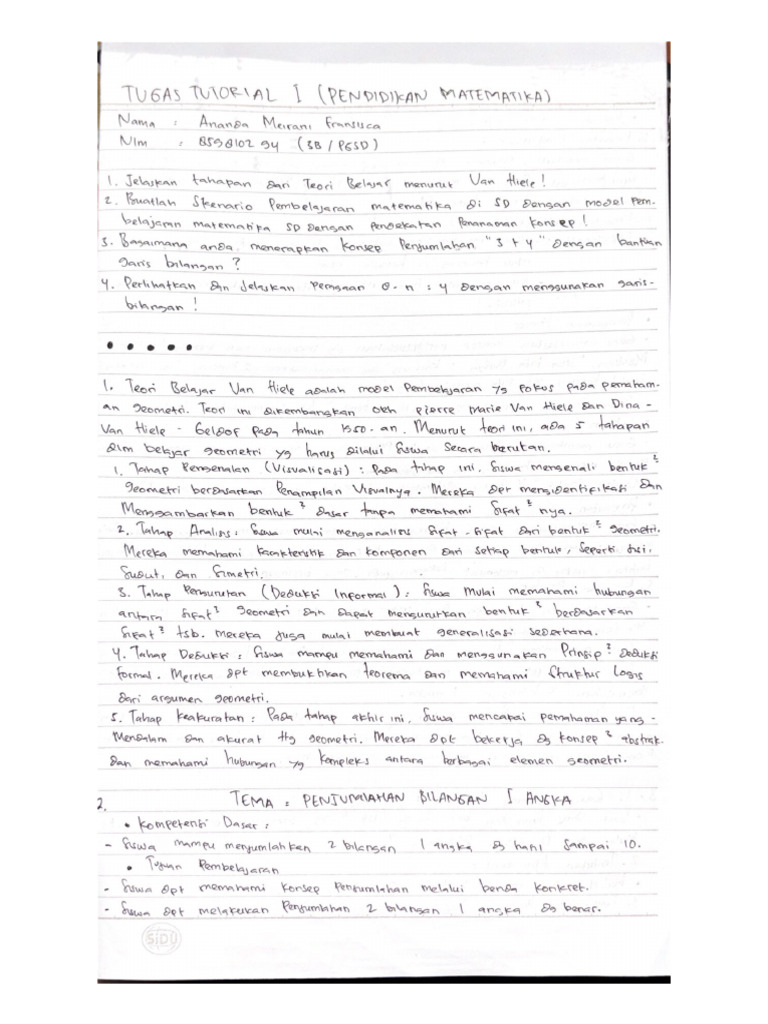 TUGAS TUTORIAL I (PENDIDIKAN MATEMATIKA)
Nama : Ananda Meirani Fransisca
NIm : 859810294 (3B / PGSD)
1. Jelaskan tahapan dari Teori Belajar menurut Van Hiele !
2. Buatlah Skenario Pembelajaran matematika di SD dengan model pem-
belajaran matematika SD dengan pendekatan Penanaman konsep !
3. Bagaimana anda menerapkan konsep Penjumlahan "3 + 4" dengan bantuan
garis bilangan ?
4. Perlihatkan dan jelaskan peragaan 0 - n = 4 dengan menggunakan garis-
bilangan !
• • • • •
1. Teori Belajar Van Hiele adalah model pembelajaran yg fokus pada pemaham-
an geometri. Teori ini dikembangkan oleh pierre marie Van Hiele dan Dina -
Van Hiele - Geldof pada tahun 1950-an. Menurut teori ini, ada 5 tahapan
dlm belajar geometri yg harus dilalui siswa secara berutan.
1. Tahap Pengenalan (Visualisasi) : Pada tahap ini, siswa mengenali bentuk²
geometri berdasarkan Penampilan Visualnya. Mereka dpt mengidentifikasi dan
Menggambarkan bentuk² dasar tanpa memahami sifat² nya.
2. Tahap Analisis : Siswa mulai menganalisis sifat-sifat dari bentuk² geometri.
Mereka memahami karakteristik dan komponen dari setiap bentuk, seperti sisi,
Sudut, dan Simetri.
3. Tahap Pengurutan (Deduksi Informal) : Siswa Mulai memahami hubungan
antara sifat² geometri dan dapat mengurutkan bentuk² berdasarkan
sifat² tsb. Mereka juga mulai membuat generalisasi sederhana.
4. Tahap Deduksi : Siswa mampu memahami dan menggunakan Prinsip² deduksi
formal. Mereka dpt membuktikan teorema dan memahami struktur logis
dari argumen geometri.
5. Tahap Keakuratan : Pada tahap akhir ini, Siswa mencapai pemahaman yang -
Mendalam dan akurat ttg geometri. Mereka dpt bekerja dg konsep² abstrak
dan memahami hubungan yg kompleks antara berbagai elemen geometri.
2. TEMA : PENJUMLAHAN BILANGAN I ANGKA
• Kompetensi Dasar :
- Siswa mampu menjumlahkan 2 bilangan 1 angka dg hasil sampai 10.
• Tujuan Pembelajaran
- Siswa dpt memahami konsep Penjumlahan melalui benda konkret.
- Siswa dpt melakukan Penjumlahan 2 bilangan 1 angka dg benar.
SIDU